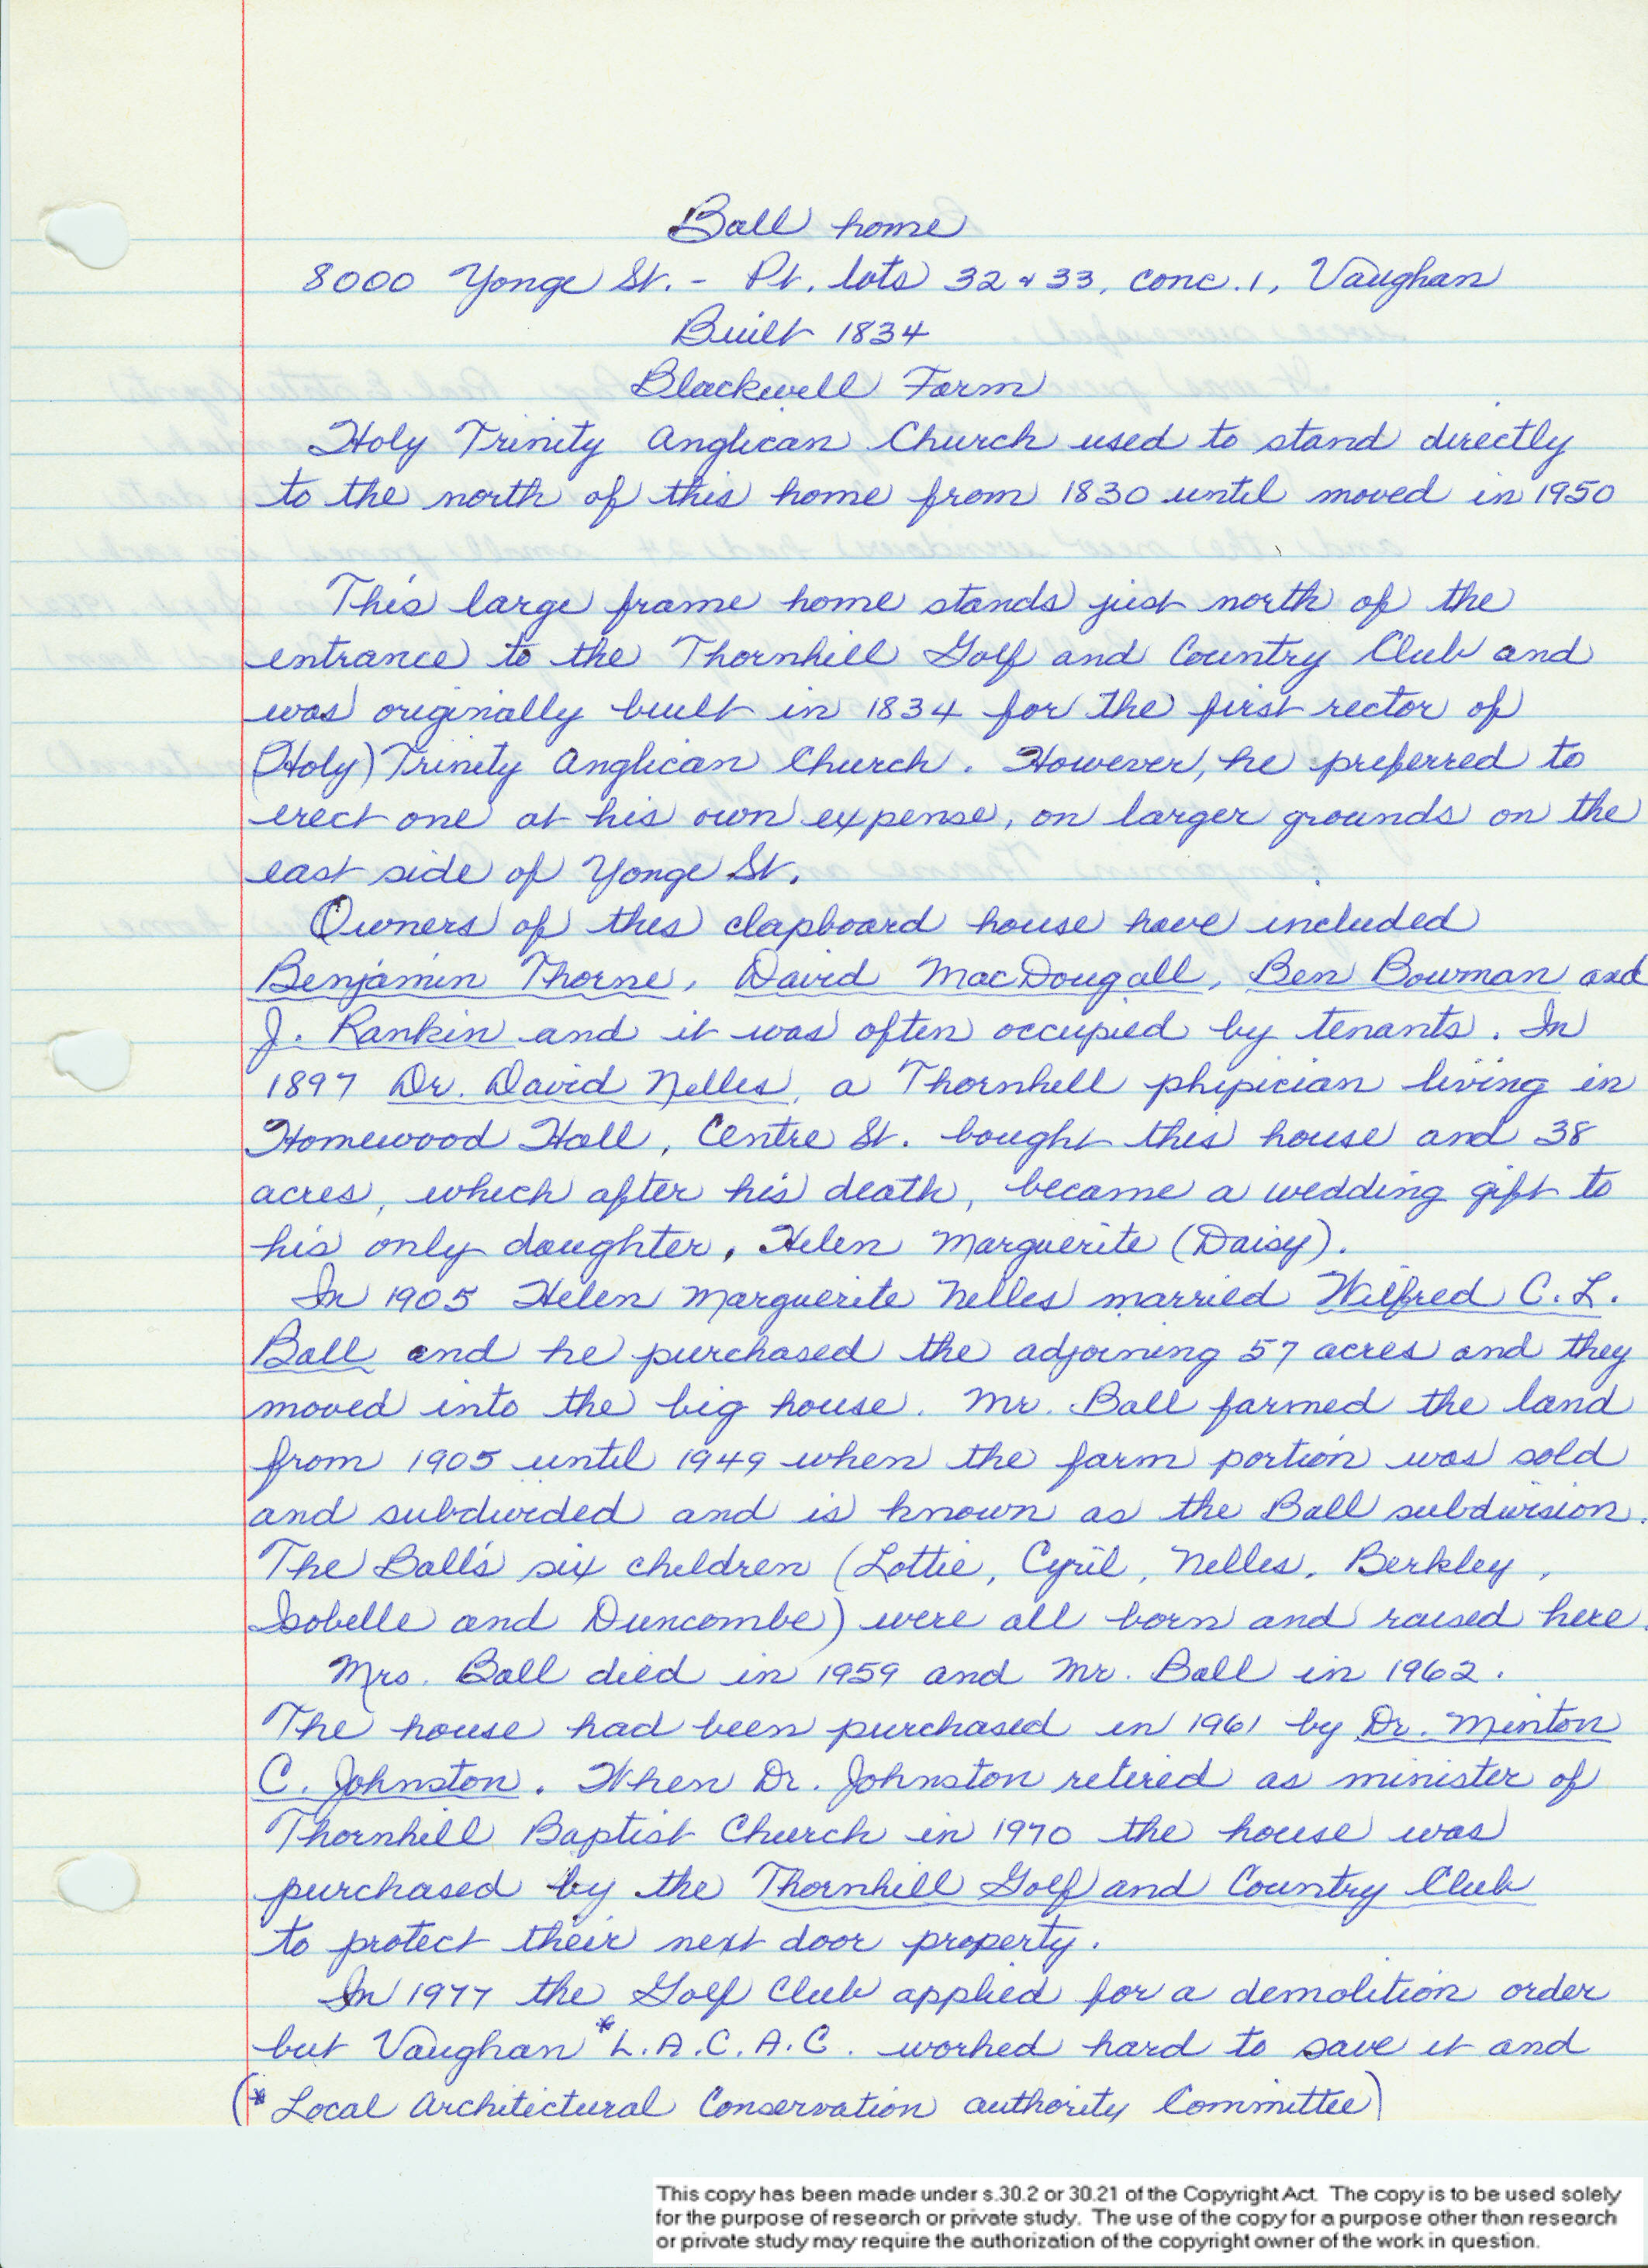 Ball home
8000 Yonge St. - Pt. lots 32 & 33, conc. 1, Vaughan
Built 1834
Blackwell Farm
Holy Trinity Anglican Church used to stand directly
to the north of this home from 1830 until moved in 1950
This large frame home stands just north of the
entrance to the Thornhill Golf and Country Club and
was originally built in 1834 for the first rector of
(Holy) Trinity Anglican Church. However, he preferred to
erect one at his own expense, on larger grounds on the
east side of Yonge St.
Owners of this clapboard house have included
Benjamin Thorne, David MacDougall, Ben Bowman and
J. Rankin and it was often occupied by tenants. In
1897 Dr. David Nelles, a Thornhill physician living in
Homewood Hall, Centre St. bought this house and 38
acres, which after his death, became a wedding gift to
his only daughter, Helen Marguerite (Daisy).
In 1905 Helen Marguerite Nelles married Wilfred C. L.
Ball and he purchased the adjoining 57 acres and they
moved into the big house. Mr. Ball farmed the land
from 1905 until 1949 when the farm portion was sold
and subdivided and is known as the Ball subdivision.
The Ball's six children (Lottie, Cyril, Nelles, Berkley,
Isobelle and Duncombe) were all born and raised here.
Mrs. Ball died in 1959 and Mr. Ball in 1962.
The house had been purchased in 1961 by Dr. Minton
C. Johnston. When Dr. Johnston retired as minister of
Thornhill Baptist Church in 1970 the house was
purchased by the Thornhill Golf and Country Club
to protect their next door property.
In 1977 the Golf Club applied for a demolition order
but Vaughan *L.A.C.A.C. worked hard to save it and
(* Local Architectural Conservation authority Committee)
This copy has been made under s.30.2 or 30.21 of the Copyright Act. The copy is to be used solely
for the purpose of research or private study. The use of the copy for a purpose other than research
or private study may require the authorization of the copyright owner of the work in question.